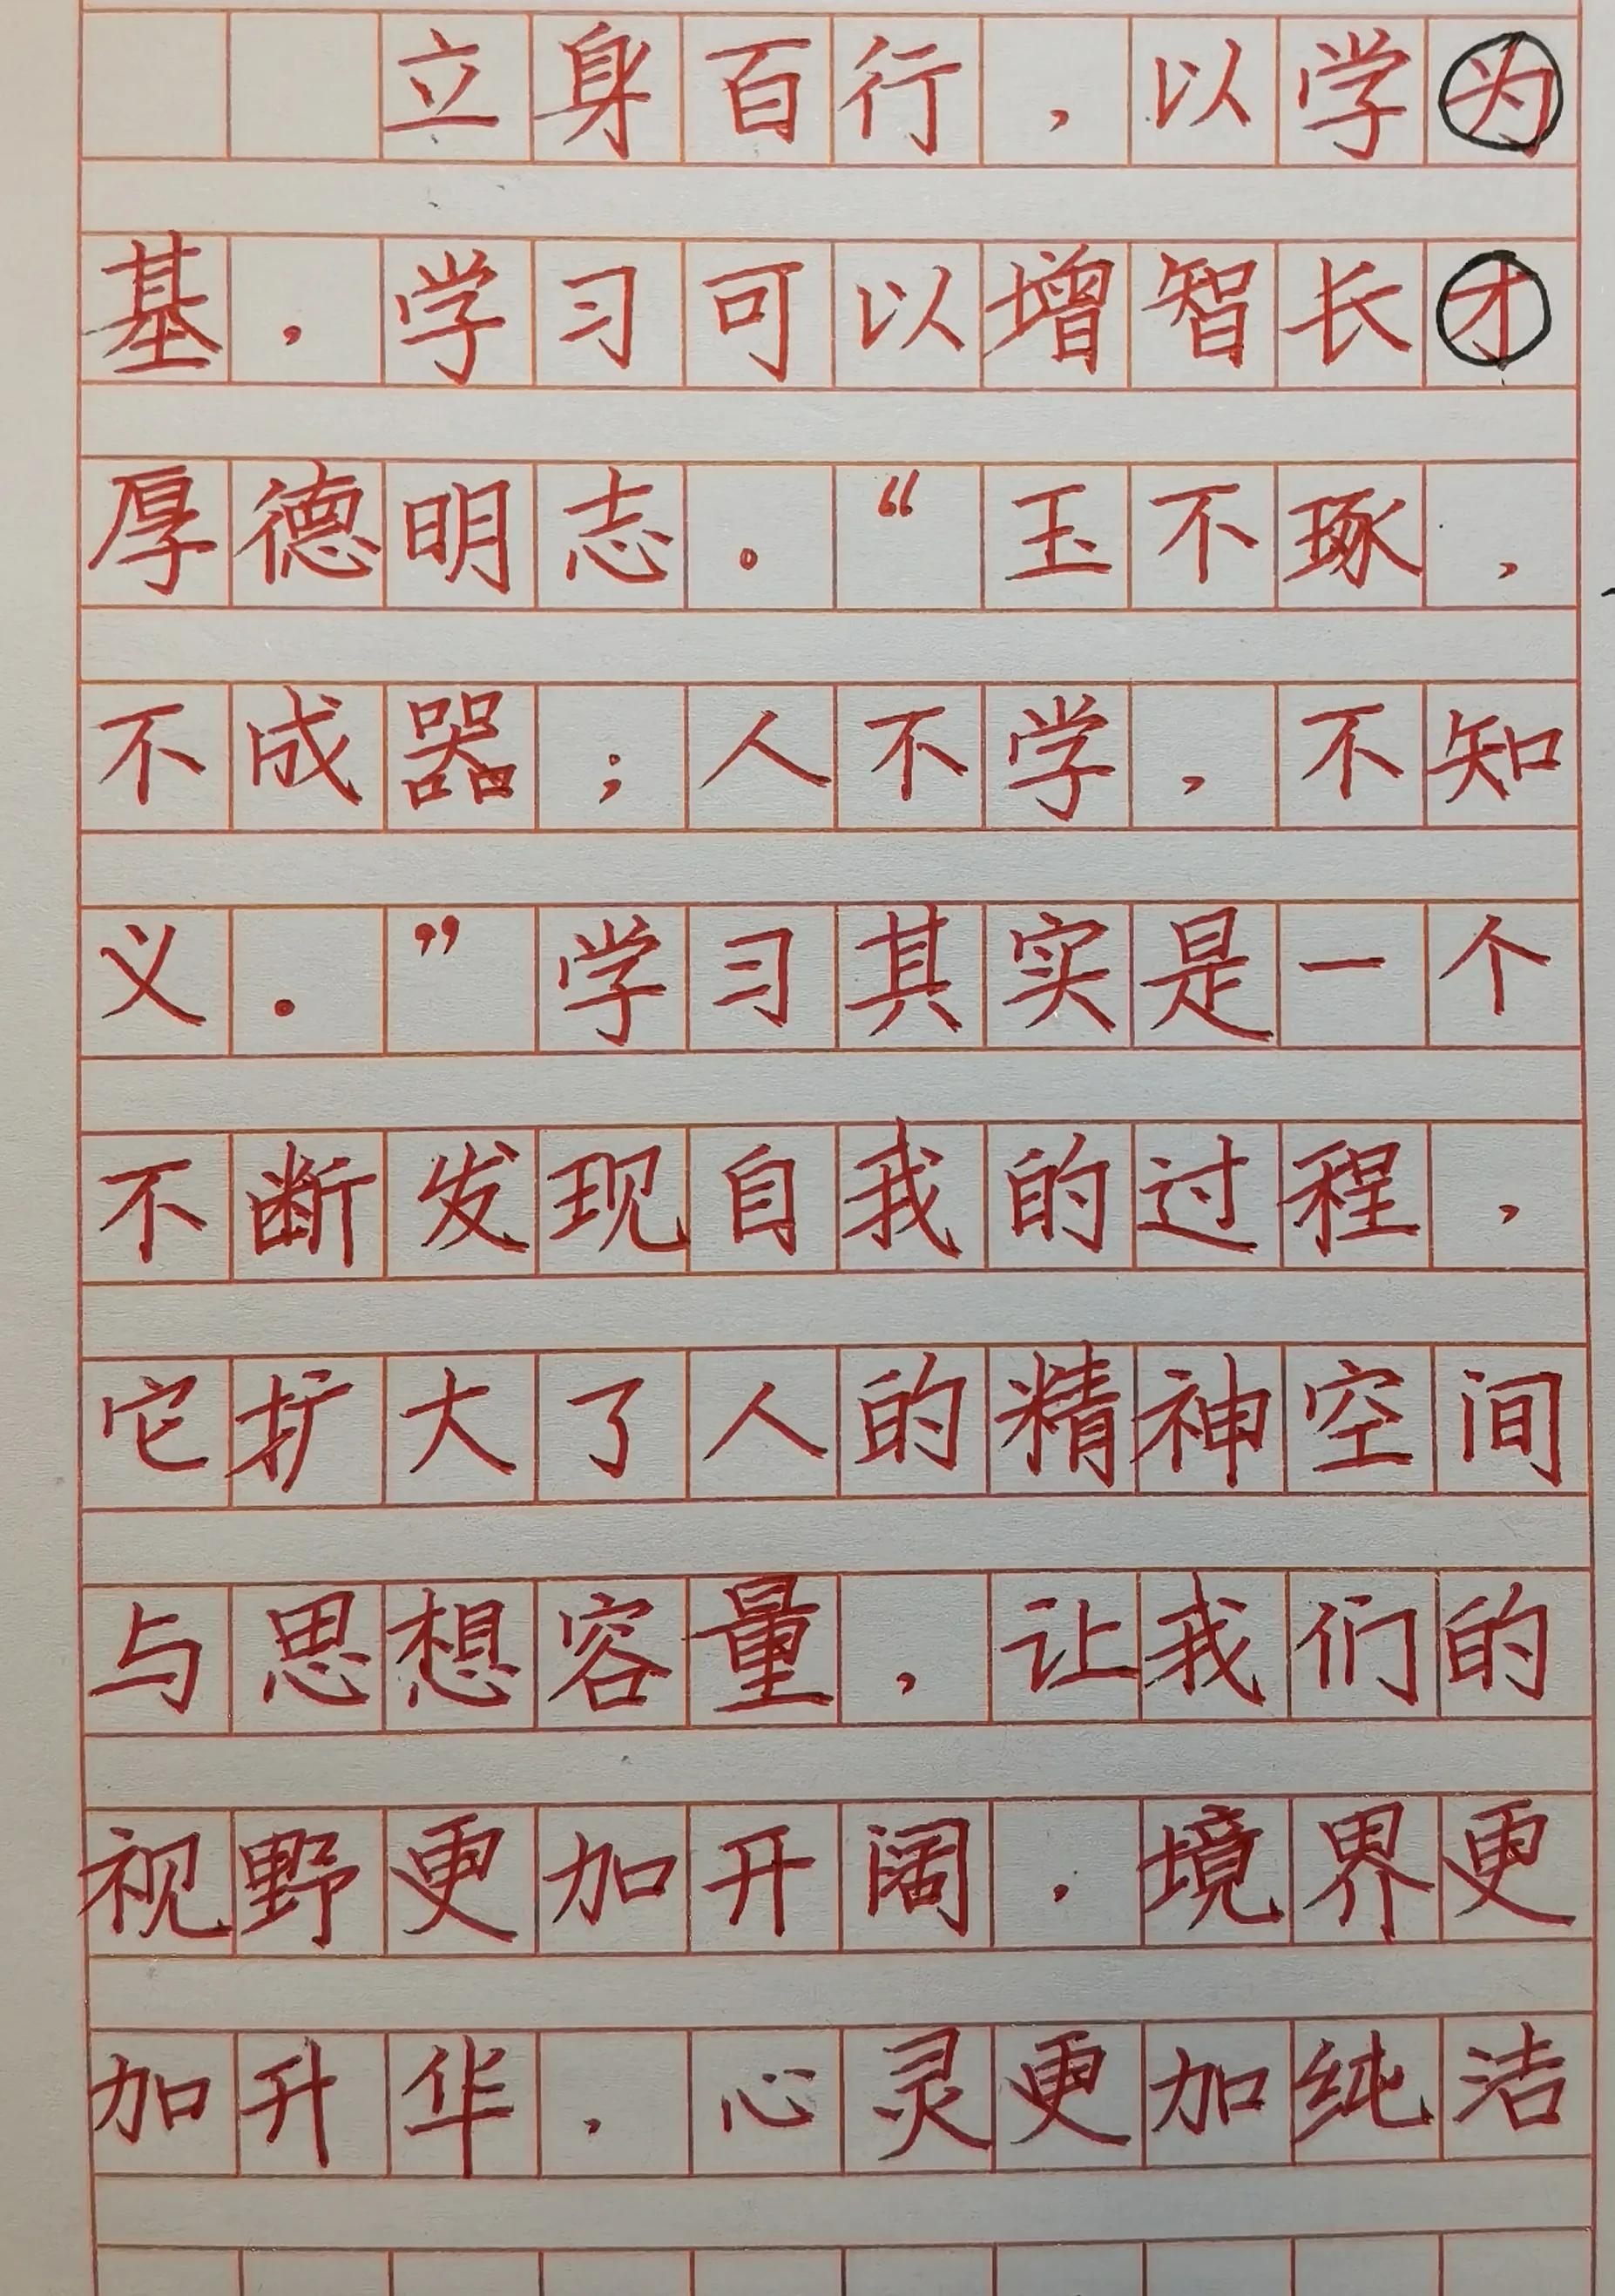 立身百行，以学为
基，学习可以增智长才
厚德明志。“玉不琢，
不成器；人不学，不知
义。”学习其实是一个
不断发现自我的过程，
它扩大了人的精神空间
与思想容量，让我们的
视野更加开阔，境界更
加升华，心灵更加纯洁